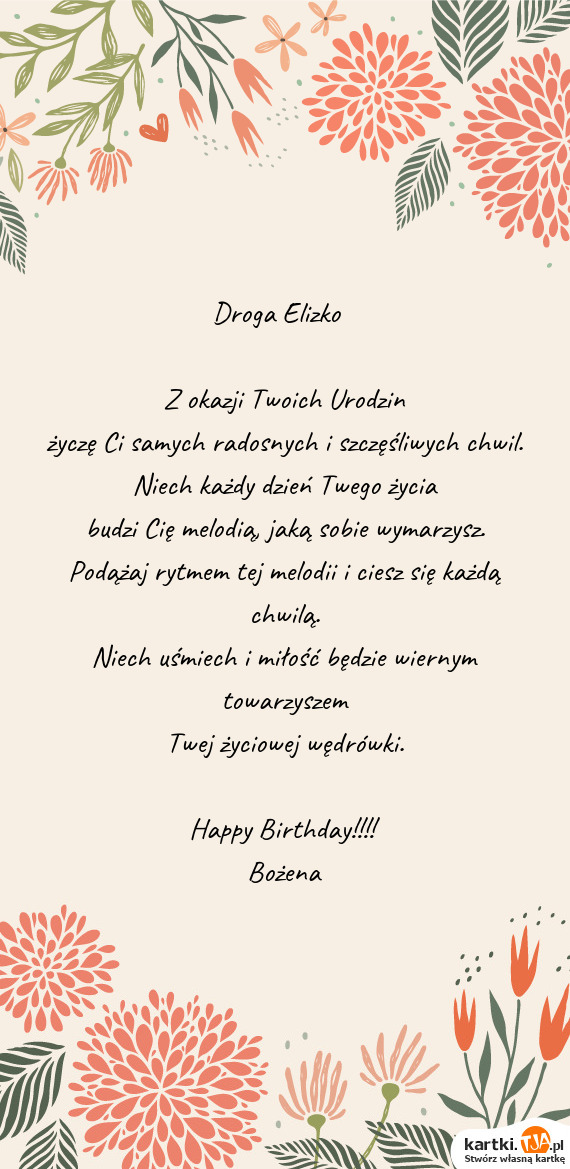 Droga Elizko
Z okazji Twoich Urodzin
życzę Ci samych radosnych i szczęśliwych chwil.
Niech każdy dzień Twego życia
budzi Cię melodią, jaką sobie wymarzysz.
Podążaj rytmem tej melodii i ciesz się każdą
chwilą.
Niech uśmiech i miłość będzie wiernym
towarzyszem
Twej życiowej wędrówki.
Happy Birthday!!!!
Bożena
kartki.TJA.pl
Stwórz własną kartkę